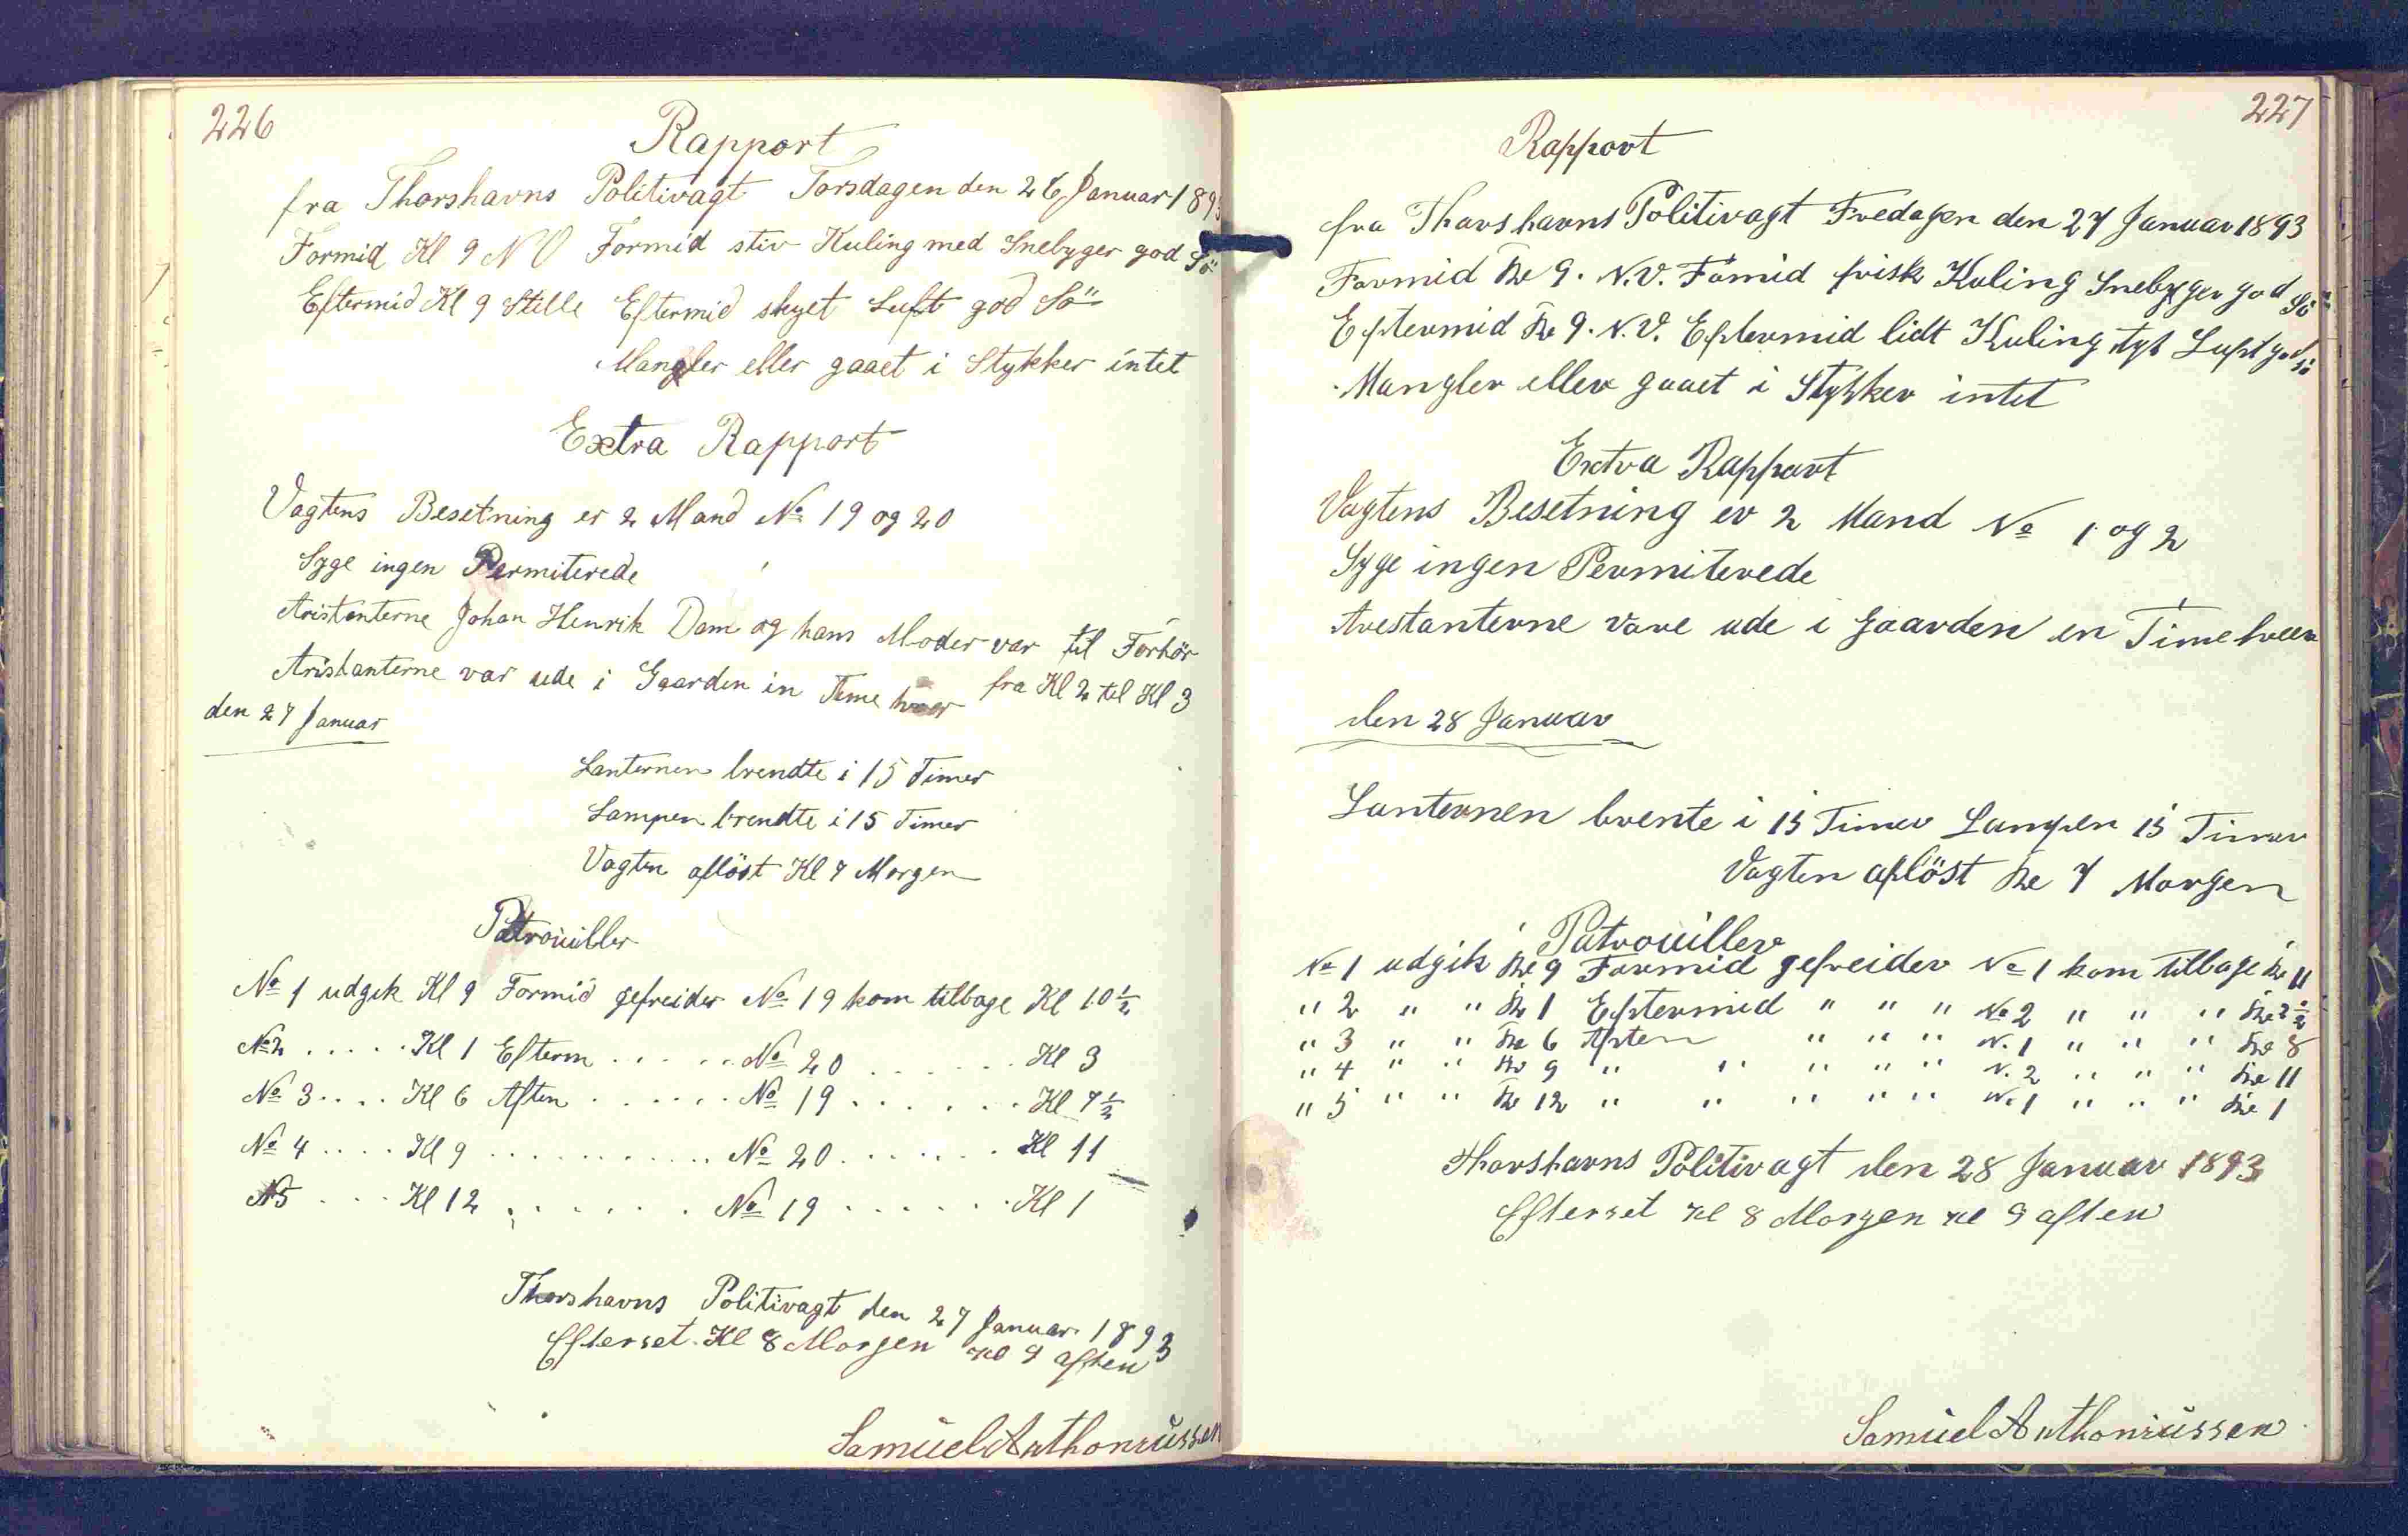 226
Rapport
fra Thorshavns Politivagt Torsdagen den 26 Januar 1893
Formid Kl 9 NV Formid stiv Kuling med Snebyger god Sö
Eftermid Kl 9 Stille Eftermid skyet Luft god Sö
Mangler eller gaaet i Stykker intet
Extra Rapport
Vagtens Besetning er 2 Mand No 19 og 20
Syge ingen Permiterede
Aristanterne Johan Henrik Dam og hans Moder var til Forhör
fra Kl 2 til Kl 3
Aristanterne var ude i Gaarden in Time hver
den 27 Januar
Lanternen brendte i 15 Timer
Lampen brendte i 15 Timer
Vagten aflöst Kl 7 Morgen
Patrouiller
No 1 udgik Kl 9 Formid gefreider No 19 kom tilbage Kl 10 1/2
No 2 ..... Kl 1 Efterm ...... No 20 ...... Kl 3
No 3 .... Kl 6 Aften ...... No 19 ...... Kl 7 1/2
No 4 .... Kl 9 ........... No 20 ...... Kl 11
N 5 ... Kl 12 ...... No 19 ...... Kl 1
Thorshavns Politivagt den 27 Januar 1893
Efterset Kl 8 Morgen Kl 9 aften
Samuel Anthoniussen
227
Rapport
fra Thorshavns Politivagt Fredagen den 27 Januar 1893
Formid Kl 9. N.V. Fomid frisk Kuling Snebyger god Sö
Eftermid Kl 9. N.V. Eftermid lidt Kuling tyk Luft god Sö
Mangler eller gaaet i Stykker intet
Extra Rapport
Vagtens Besetning er 2 Mand No 1 og 2
Syge ingen Permiterede
Arestanterne vare ude i Gaarden en Time hver
den 28 Januar
Lanternen brente i 15 Timer Lampen 15 Timer
Vagten aflöst Kl 7 Morgen
Patrouiller
No 1 udgik Kl 9 Formid gefreider No 1 kom tilbage Kl 11
" 2 " " Kl 1 Eftermid " " " No 2 " " " Kl 2 1/2
" 3 " " Kl 6 Aften " " " N. 1 " " " Kl 8
" 4 " " Kl 9 " " " " " N. 2 " " " Kl 11
" 5 " " Kl 12 " " " " " N. 1 " " " Kl 1
Thorshavns Politivagt den 28 Januar 1893
Efterset Kl 8 Morgen Kl 9 aften
Samuel Anthoniussen